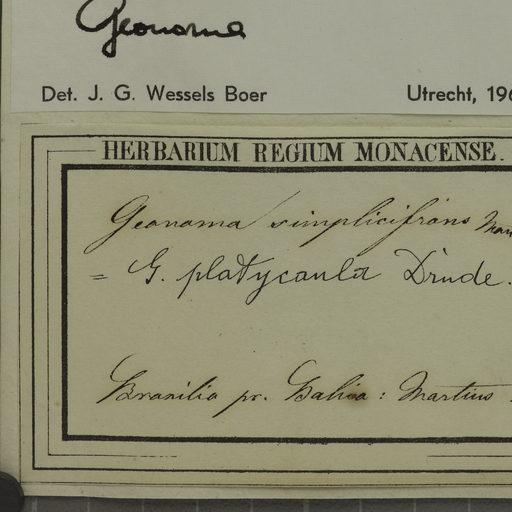 Geonoma
Det. J. G. Wessels Boer Utrecht, 196
HERBARIUM REGIUM MONACENSE.
Geonoma simplicifrons Mart
= G. platycaula Drude.
Brasilia pr. Bahia: Martius